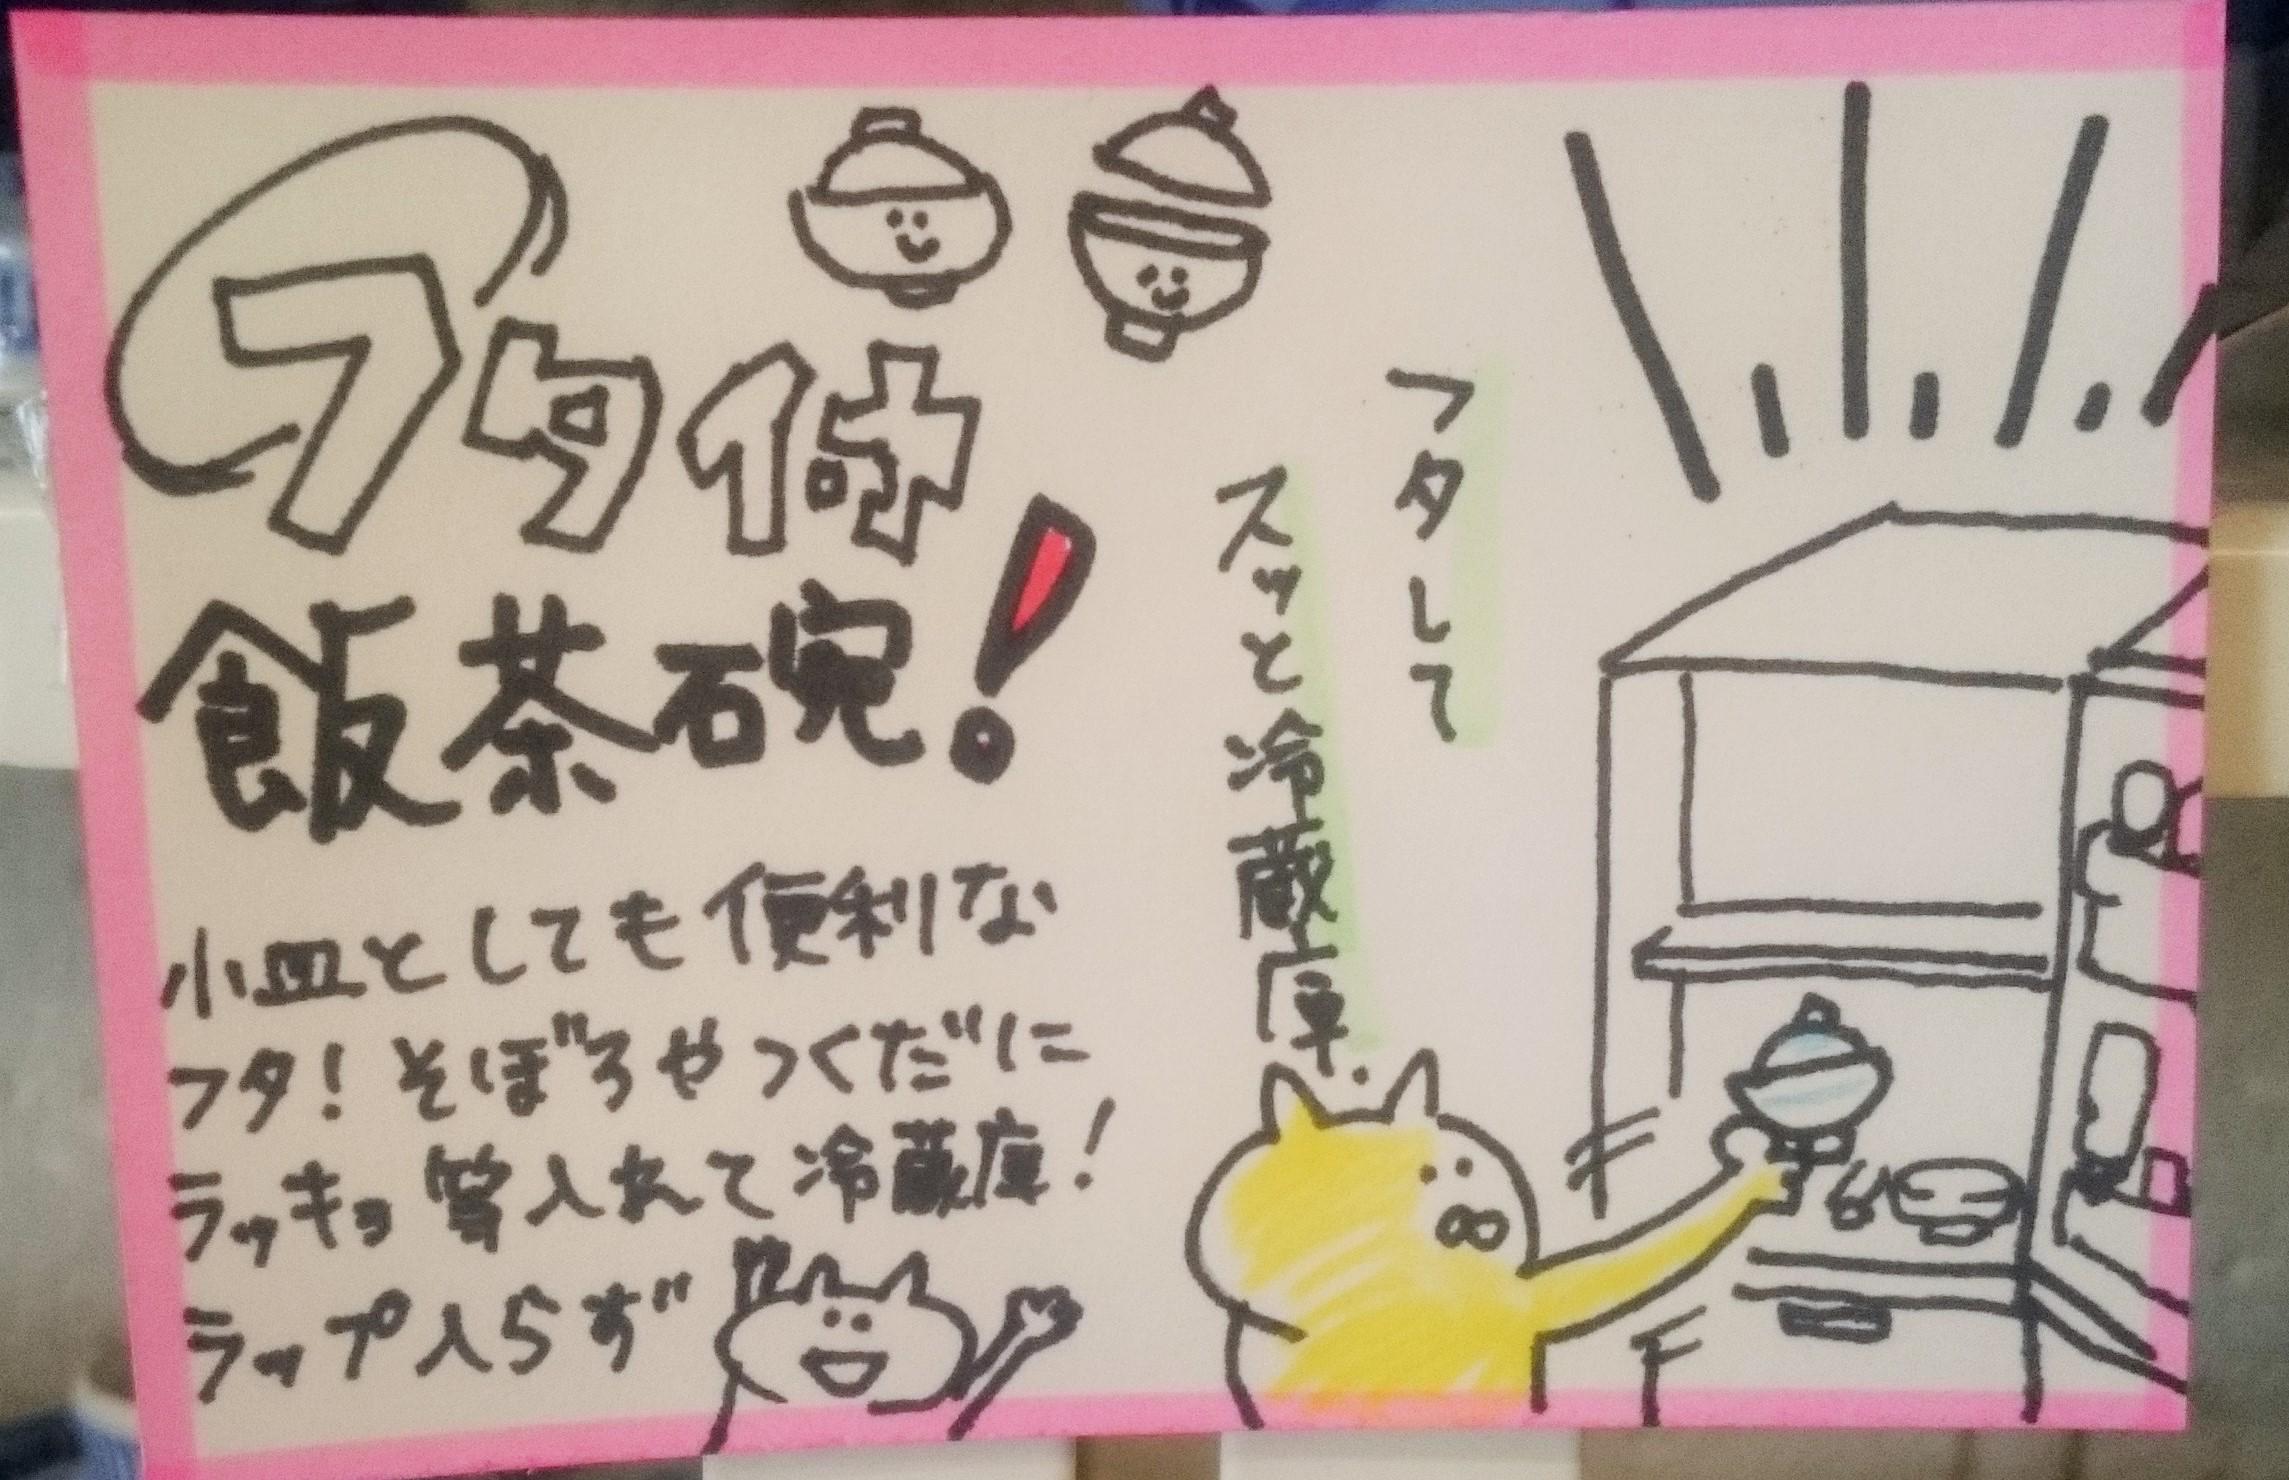 フタ付
飯茶碗!
小皿としても便利な
フタ!そぼろやつくだに
ラッキョ等入れて冷蔵庫!
ラップ入らず
フタして
スッと冷蔵庫.